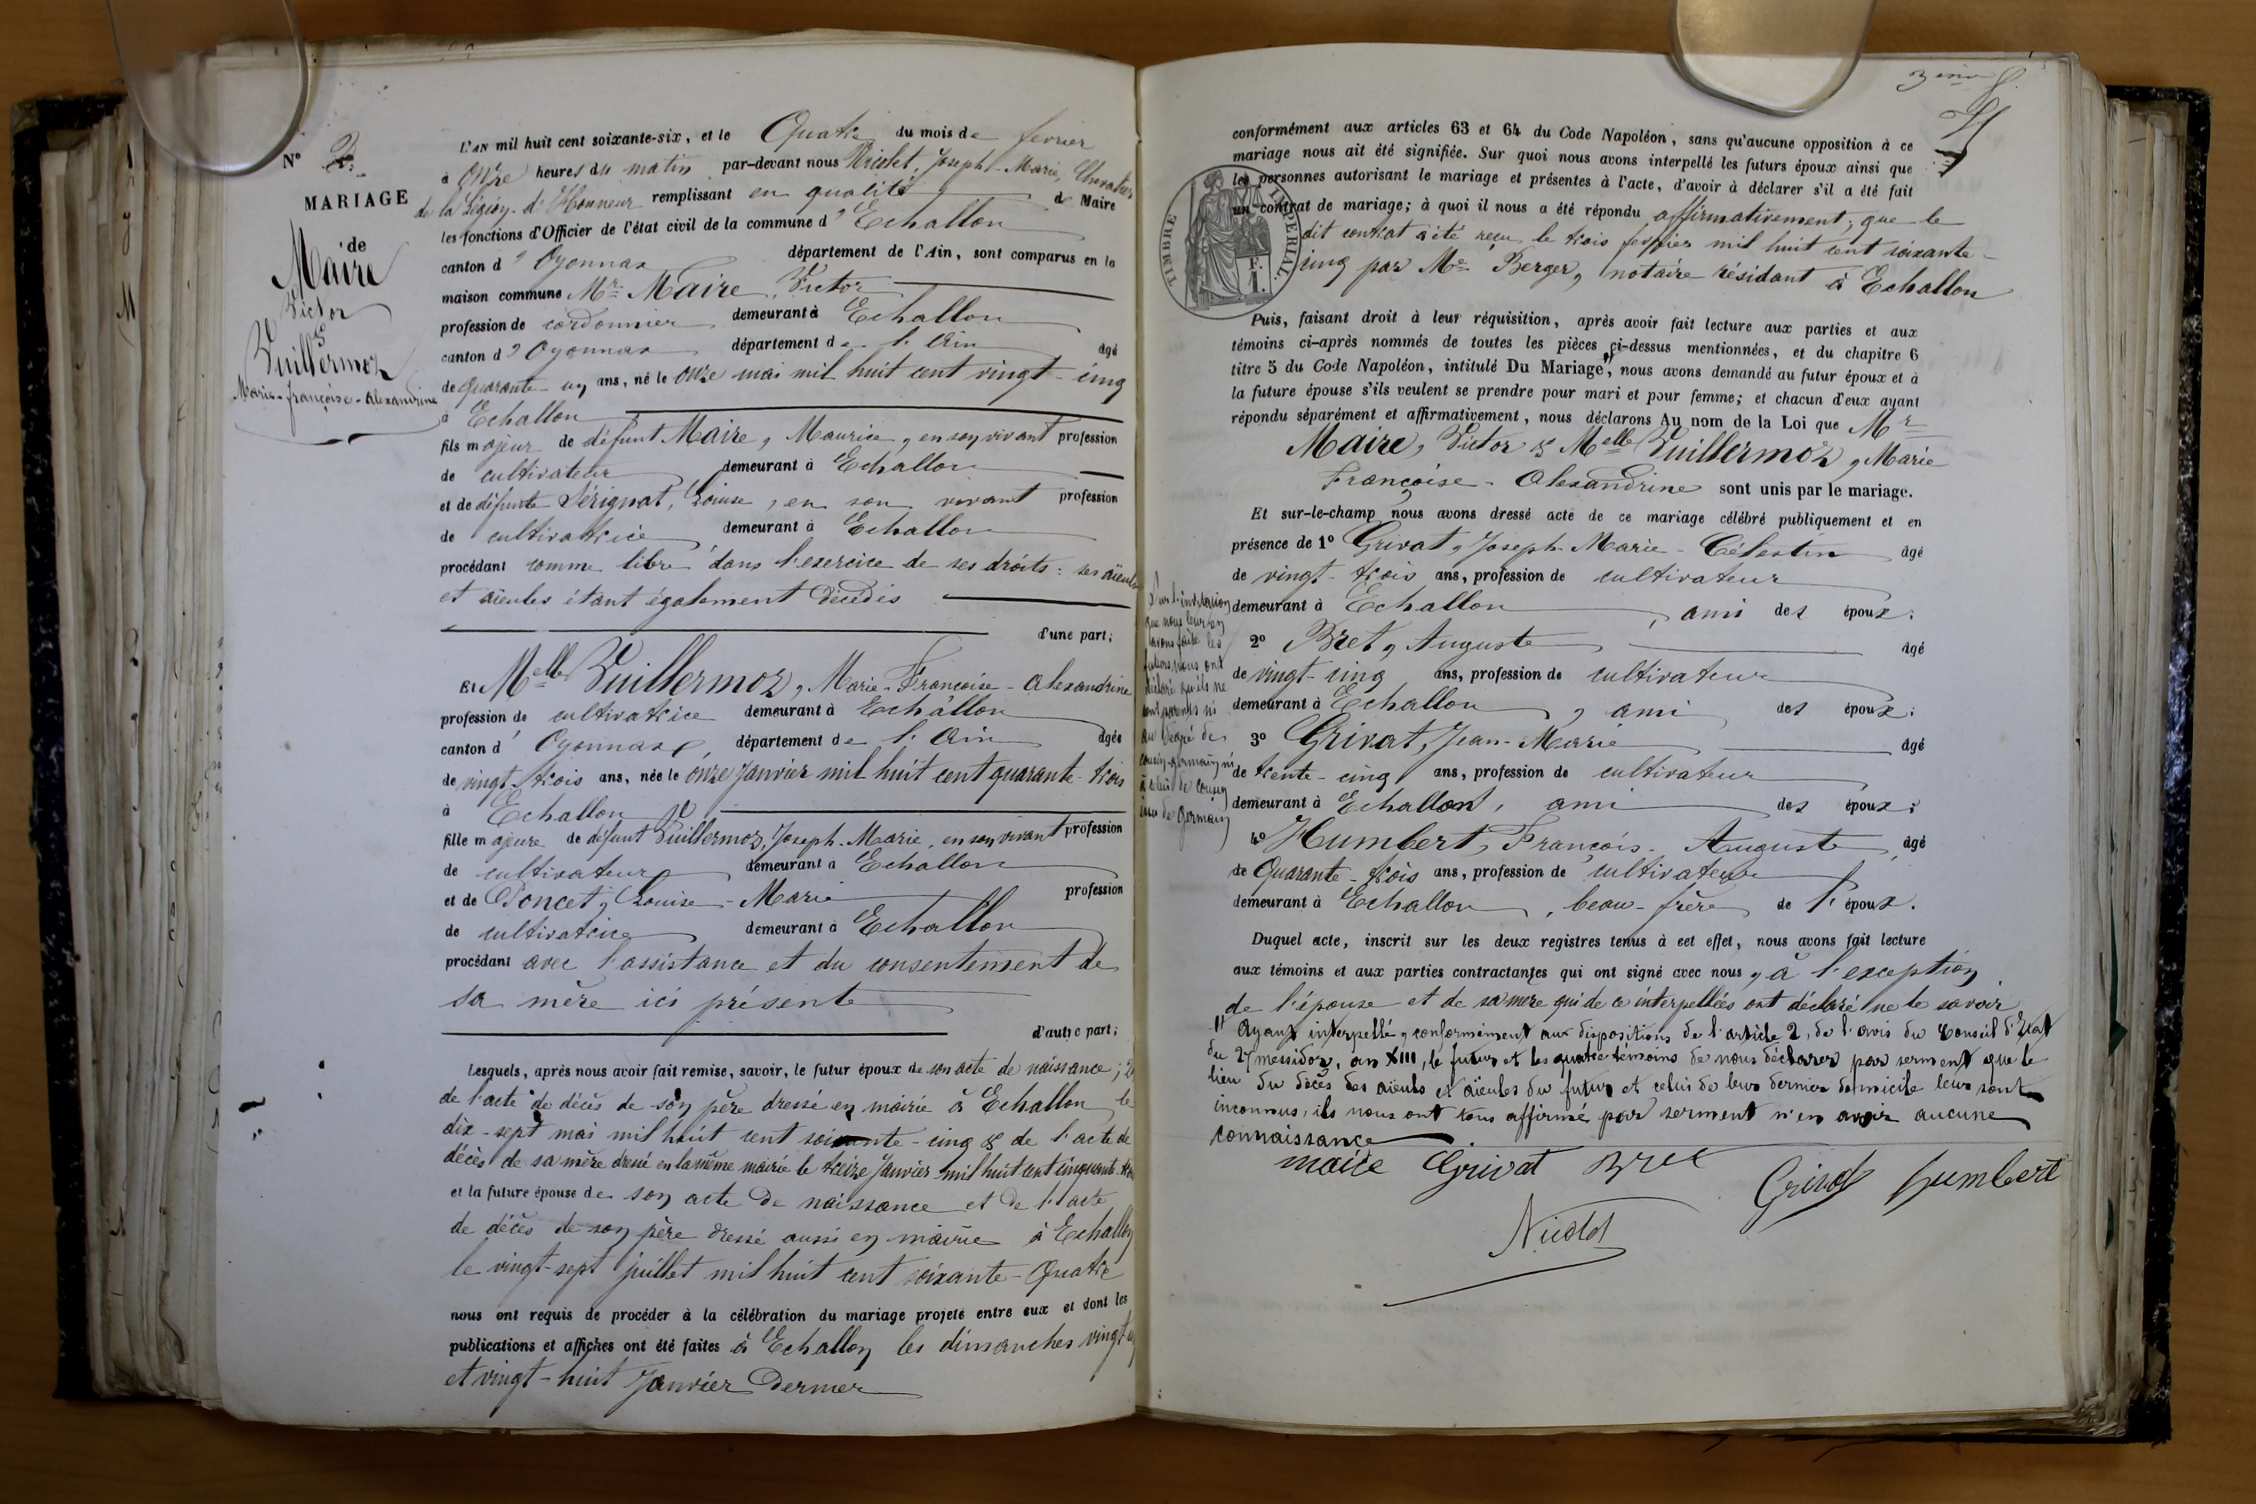 N° 2.
MARIAGE
de
Maire
Victor
&
Vuillermoz
Marie-françoise-Alexandrine
L'AN mil huit cent soixante-six, et le Quatre du mois de fevrier
à Onze heures du matin par-devant nous Nicolet, Joseph-Marie, Chevalier
de la Légion-d'Honneur remplissant en qualité de Maire
les fonctions d'Officier de l'état civil de la commune d'Echallon
canton d'Oyonnax département de l'Ain, sont comparus en la
maison commune Mr. Maire, Victor
profession de cordonnier demeurant à Echallon
canton d'Oyonnax département de l'Ain âgé
de quarante-un ans, né le onze mai mil huit cent vingt-cinq
à Echallon
fils majeur de défunt Maire, Maurice, en son vivant profession
de cultivateur demeurant à Echallon
et de défunte Sérignat, Louise, en son vivant profession
de cultivatrice demeurant à Echallon
procédant comme libre dans l'exercice de ses droits: ses aïeuls
et aïeules étant également décédés
d'une part;
Et Melle Vuillermoz, Marie-Françoise-Alexandrine
profession de cultivatrice demeurant à Echallon
canton d'Oyonnax, département de l'Ain âgée
de vingt-trois ans, née le onze Janvier mil huit cent quarante-trois
à Echallon
fille majeure de défunt Vuillermoz, Joseph-Marie, en son vivant profession
de cultivateur demeurant à Echallon
et de Poncet, Louise-Marie profession
de cultivatrice demeurant à Echallon
procédant avec l'assistance et du consentement de
sa mère ici présente
d'autre part;
Lesquels, après nous avoir fait remise, savoir, le futur époux de son acte de naissance;
de l'acte de décès de son père dressé en mairie à Echallon le
dix-sept mai mil huit cent soixante-cinq & de l'acte de
décès de sa mère dressé en la même mairie le treize Janvier mil huit cent cinquante
et la future épouse de son acte de naissance et de l'acte
de décès de son père dressé aussi en mairie à Echallon
le vingt-sept juillet mil huit cent soixante-Quatre
nous ont requis de procéder à la célébration du mariage projeté entre eux et dont les
publications et affiches ont été faites à Echallon les dimanches vingt-un
et vingt-huit Janvier dernier
conformément aux articles 63 et 64 du Code Napoléon, sans qu'aucune opposition à ce
mariage nous ait été signifiée. Sur quoi nous avons interpellé les futurs époux ainsi que
les personnes autorisant le mariage et présentes à l'acte, d'avoir à déclarer s'il a été fait
un contrat de mariage; à quoi il nous a été répondu affirmativement; que le
dit contrat a été reçu le trois fevrier mil huit cent soixante-
cinq par Me Berger, notaire résidant à Echallon
TIMBRE IMPERIAL.
1 F.
Puis, faisant droit à leur réquisition, après avoir fait lecture aux parties et aux
témoins ci-après nommés de toutes les pièces ci-dessus mentionnées, et du chapitre 6
titre 5 du Code Napoléon, intitulé Du Mariage, nous avons demandé au futur époux et à
la future épouse s'ils veulent se prendre pour mari et pour femme; et chacun d'eux ayant
répondu séparément et affirmativement, nous déclarons Au nom de la Loi que Mr
Maire, Victor & Melle Vuillermoz, Marie
Françoise-Alexandrine sont unis par le mariage.
Et sur-le-champ nous avons dressé acte de ce mariage célébré publiquement et en
présence de 1° Grivat, Joseph-Marie-Célestin âgé
de vingt-trois ans, profession de cultivateur
demeurant à Echallon, ami des époux;
2° Bret, Auguste âgé
de vingt-cinq ans, profession de cultivateur
demeurant à Echallon, ami des époux;
3° Grivat, Jean-Marie âgé
de trente-cinq ans, profession de cultivateur
demeurant à Echallon, ami des époux;
4° Humbert, François-Auguste, âgé
de Quarante-trois ans, profession de cultivateur
demeurant à Echallon, beau-frère de l'époux.
Sur l'invitation
que nous leur en
avons faite les
futurs nous ont
déclaré qu'ils ne
sont parents ni
au degré de
cousin-germain, ni
à celui de cousin
issu de germain
Duquel acte, inscrit sur les deux registres tenus à cet effet, nous avons fait lecture
aux témoins et aux parties contractantes qui ont signé avec nous, à l'exception
de l'épouse et de sa mère qui de ce interpellées ont déclaré ne le savoir
Ayant interpellé, conformément aux dispositions de l'article 2, de l'avis du Conseil d'Etat
du 27 messidor, an XIII, le futur et les quatre témoins de nous déclarer par serment que le
lieu du décès des aïeuls et aïeules du futur et celui de leur dernier domicile leur sont
inconnus, ils nous ont tous affirmé par serment n'en avoir aucune
connaissance
maire Grivat Bret Grivat humbert
Nicolet